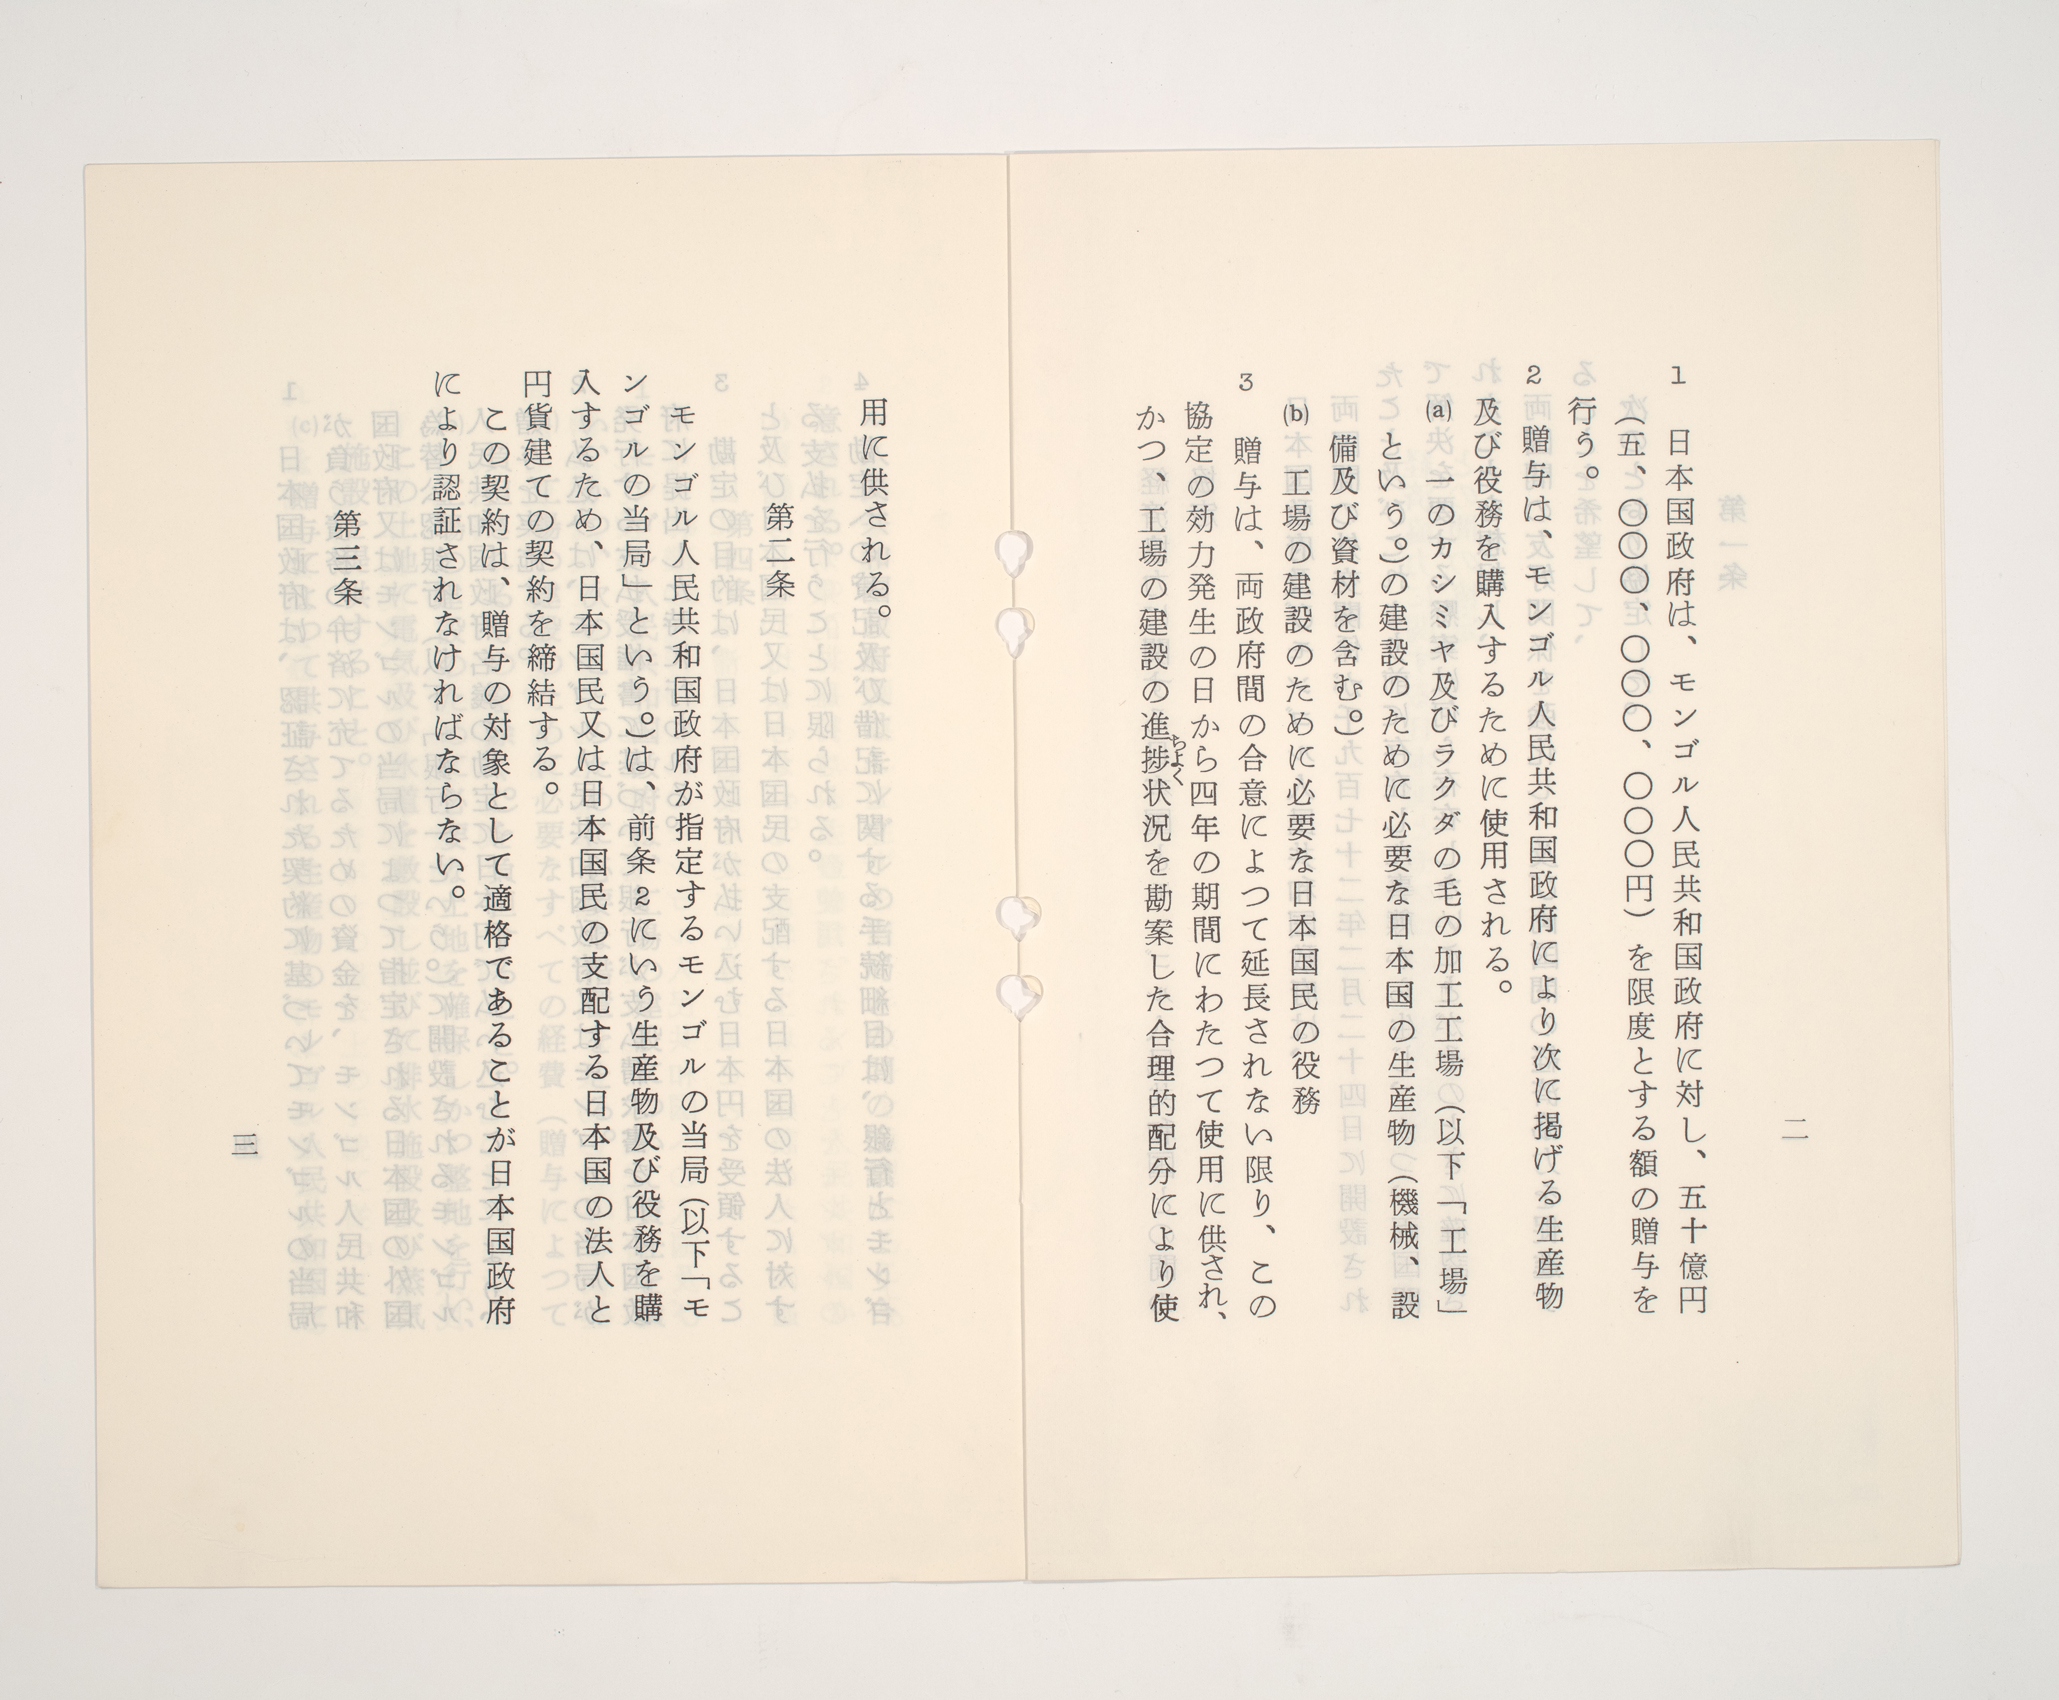 二
1　日本国政府は、モンゴル人民共和国政府に対し、五十億円
（五、〇〇〇、〇〇〇、〇〇〇円）を限度とする額の贈与を
行う。
2　贈与は、モンゴル人民共和国政府により次に掲げる生産物
及び役務を購入するために使用される。
(a)　一のカシミヤ及びラクダの毛の加工工場（以下「工場」
という。）の建設のために必要な日本国の生産物（機械、設
備及び資材を含む。）
(b)　工場の建設のために必要な日本国民の役務
3　贈与は、両政府間の合意によつて延長されない限り、この
協定の効力発生の日から四年の期間にわたつて使用に供され、
かつ、工場の建設の進捗ちよく状況を勘案した合理的配分により使
用に供される。
第二条
モンゴル人民共和国政府が指定するモンゴルの当局（以下「モ
ンゴルの当局」という。）は、前条2にいう生産物及び役務を購
入するため、日本国民又は日本国民の支配する日本国の法人と
円貨建ての契約を締結する。
この契約は、贈与の対象として適格であることが日本国政府
により認証されなければならない。
第三条
三